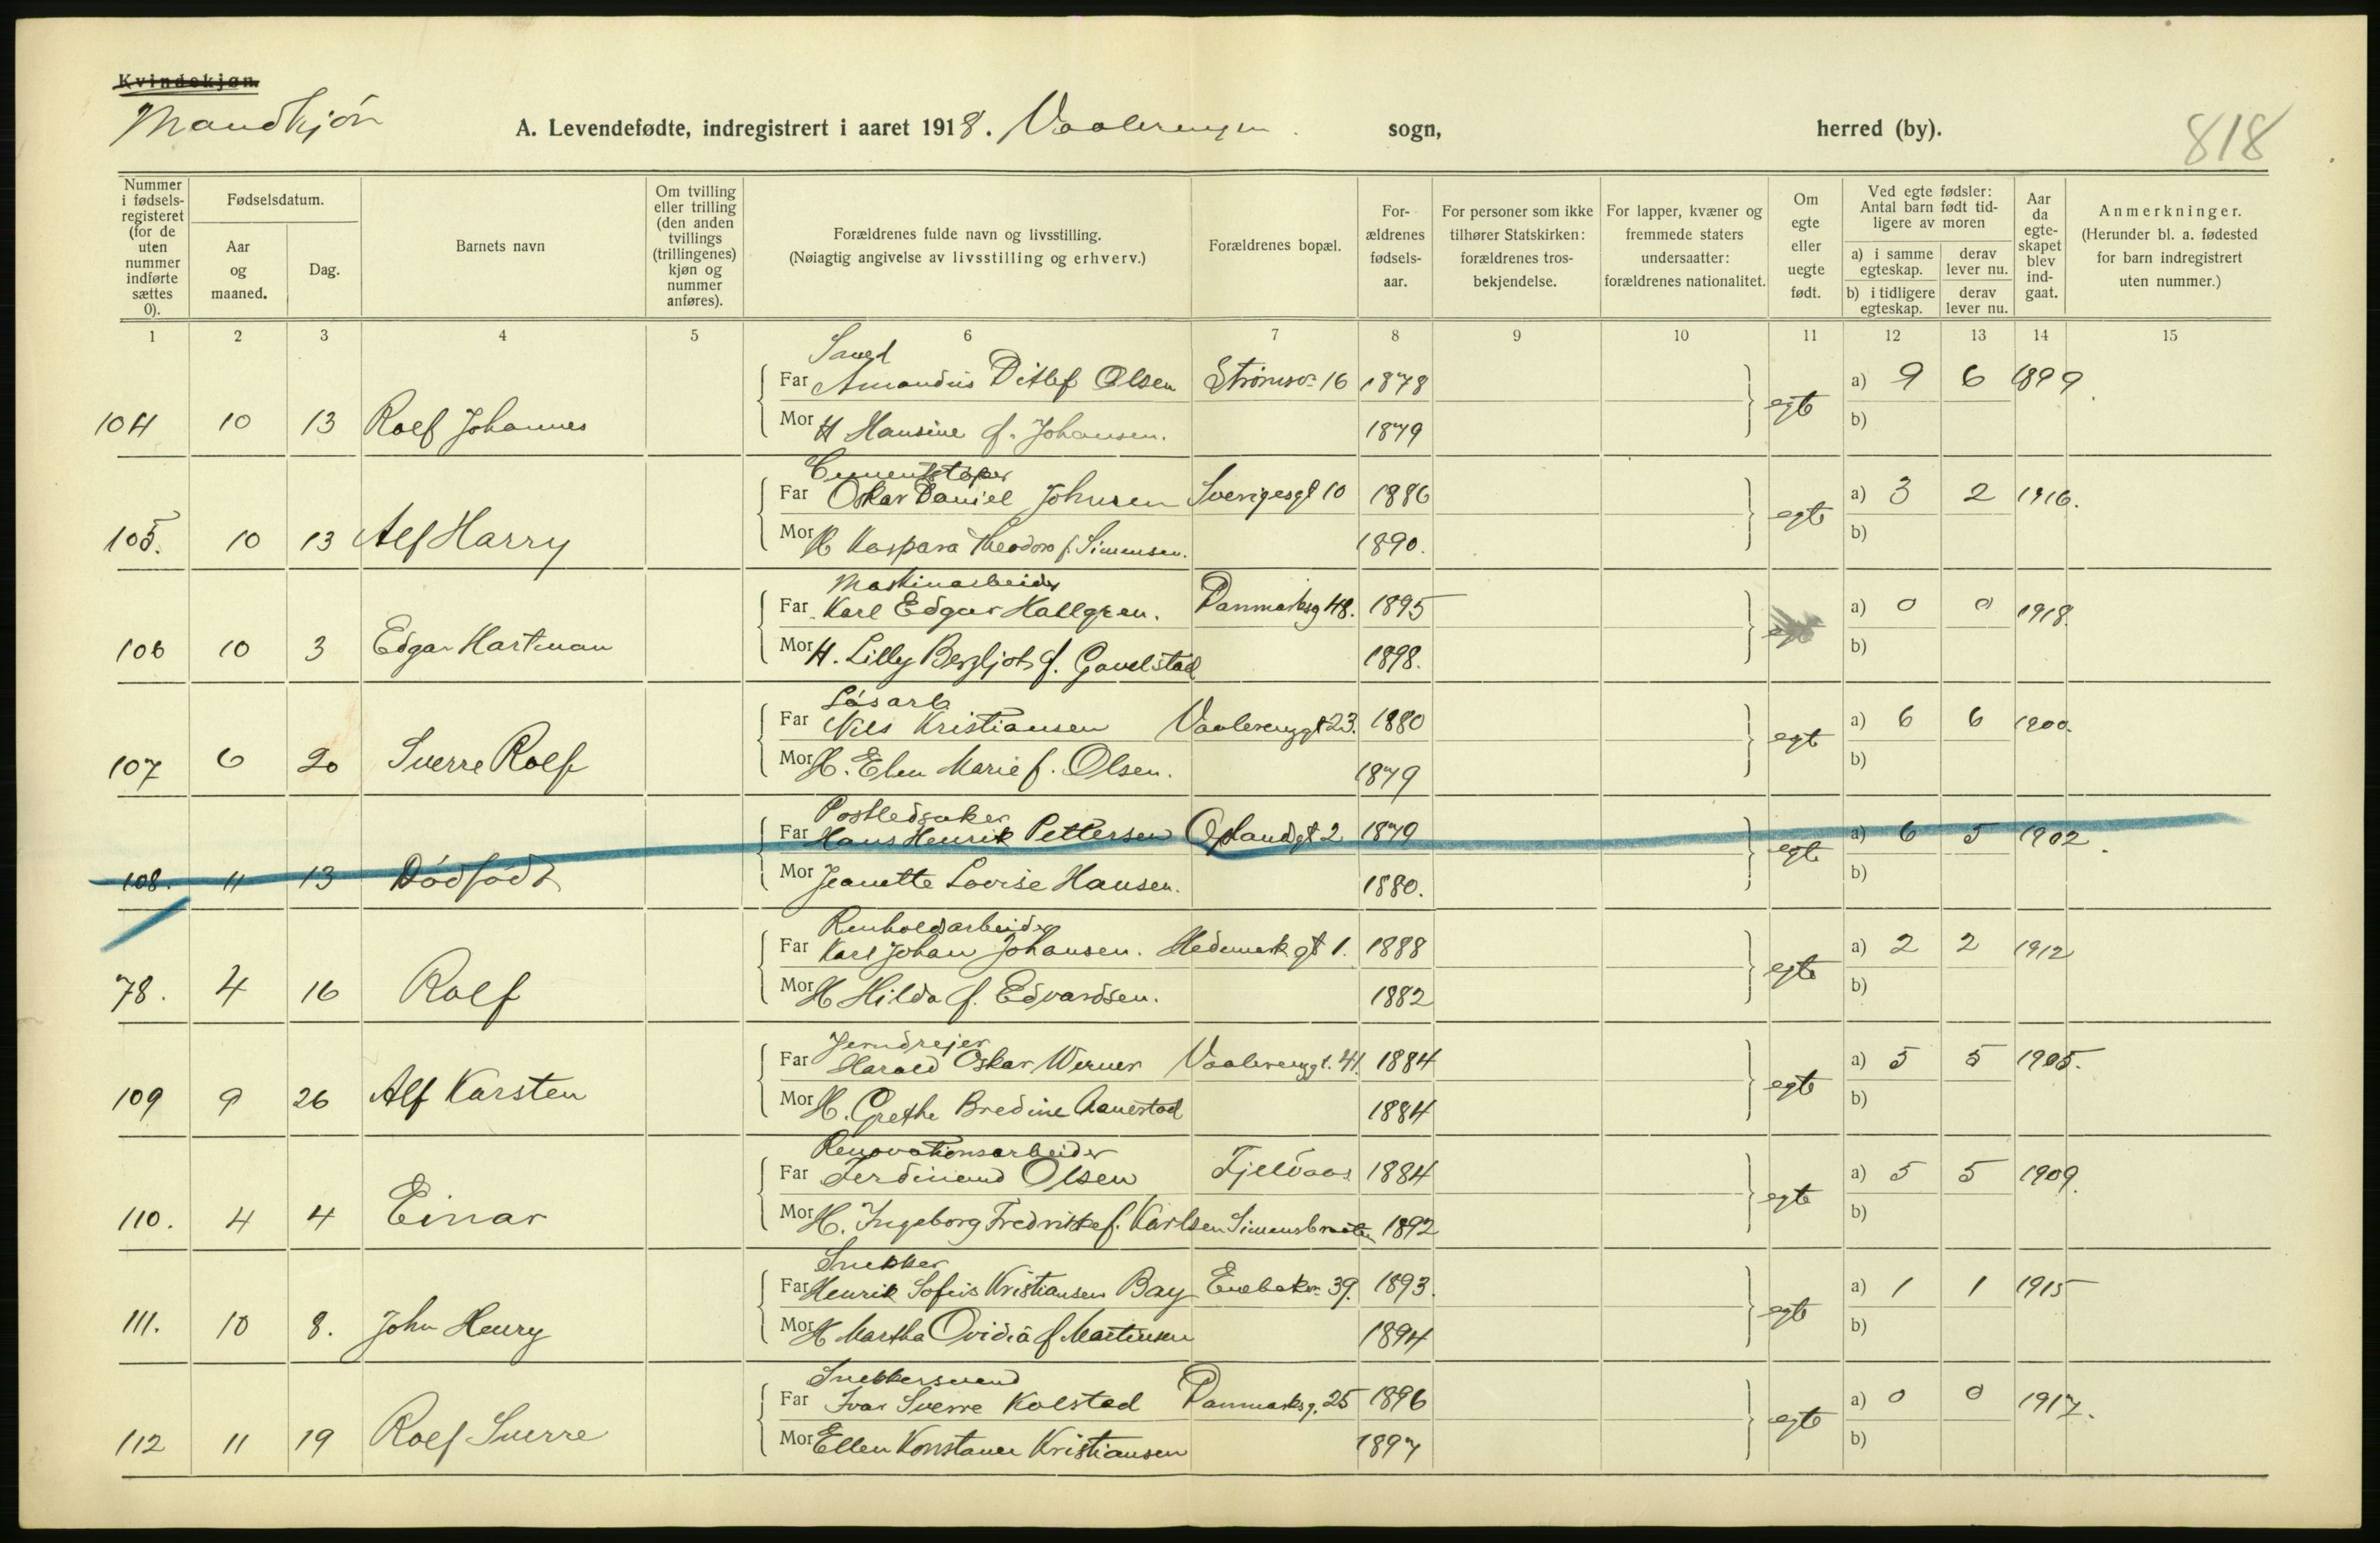 Kvindekjøn.
Mandkjøn
A. Levendefødte, indregistrert i aaret 1918. Vaalerengen sogn, herred (by).
818
Nummer i fødsels-registeret (for de uten nummer indførte sættes 0).
Fødselsdatum.
Aar og maaned.
Dag.
Barnets navn
Om tvilling eller trilling (den anden tvillings (trillingenes) kjøn og nummer anføres).
Forældrenes fulde navn og livsstilling.
(Nøiagtig angivelse av livsstilling og erhverv.)
Forældrenes bopæl.
For-ældrenes fødsels-aar.
For personer som ikke tilhører Statskirken: forældrenes tros-bekjendelse.
For lapper, kvæner og fremmede staters undersaatter: forældrenes nationalitet.
Om egte eller uegte født.
Ved egte fødsler: Antal barn født tid-ligere av moren
a) i samme egteskap. derav lever nu.
b) i tidligere egteskap. derav lever nu.
Aar da egte-skapet blev ind-gaat.
Anmerkninger.
(Herunder bl. a. fødested for barn indregistrert uten nummer.)
1 2 3 4 5 6 7 8 9 10 11 12 13 14 15
Far Amandus Ditlef Olsen Strømsv. 16 1878 a) 9 6 1899
104 10 13 Rolf Johannes Mor H Hansine f. Johansen. 1879 egte b)
Cementstøper
Far Oskar Daniel Johnsen Sverigesgt 10 1886 a) 3 2 1916.
105. 10 13 Alf Harry Mor H Kaspara Theodora f. Simensen. 1890. egte b)
Maskinarbeider
Far Karl Edgar Hallgren. Danmarksg 48. 1895 a) 0 0 1918.
106 10 3 Edgar Hartman Mor H. Lilly Bergljot f. Gavelstad 1898. egte b)
Løsarb
Far Nils Kristiansen Vaalerenggt 23. 1880 a) 6 6 1900.
107 6 20 Sverre Rolf Mor H. Elen Marie f. Olsen. 1879 egte b)
Postledsaker
Far Hans Henrik Pettersen Oplandgt 2 1879 a) 6 5 1902.
108. 11 13 Dødfødt Mor Jeanette Lovise Hansen. 1880. egte b)
Renholdsarbeider
Far Karl Johan Johansen. Hedemarkgt 1. 1888 a) 2 2 1912
78. 4 16 Rolf Mor H Hilda f. Edvardsen. 1882 egte b)
Jerndrejer
Far Harald Oskar Werner Vaalerenggt. 41. 1884 a) 5 5 1905.
109 9 26 Alf Karsten Mor H. Grethe Bredine Aanestad 1884 egte b)
Renovationsarbeider
Far Ferdinand Olsen Fjeldaas 1884 a) 5 5 1909.
110. 4 4 Einar Mor H. Ingeborg Fredrikke f. Karlsen Simensbraaten 1892 egte b)
Snekker
Far Henrik Sofus Kristiansen Bay Enebakv. 39. 1893. a) 1 1 1915
111. 10 8. John Henry Mor H Martha Ovidia f Martinsen 1894 egte b)
Snekkersvend
Far Ivar Sverre Kolstad Danmarksg. 25 1896 a) 0 0 1917.
112 11 19 Rolf Sverre Mor Ellen Konstance Kristiansen 1897 egte b)